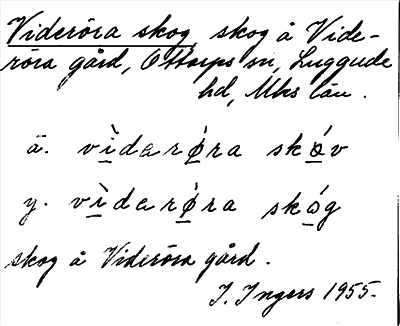 Videröra skog skog å Vide-
röra gård, Ottarps sn, Luggude
hd, Mhs län.
ä. vìdarǿra skóv
y. vìdarǿra skóg
skog å Videröra gård.
I. Ingers 1955.